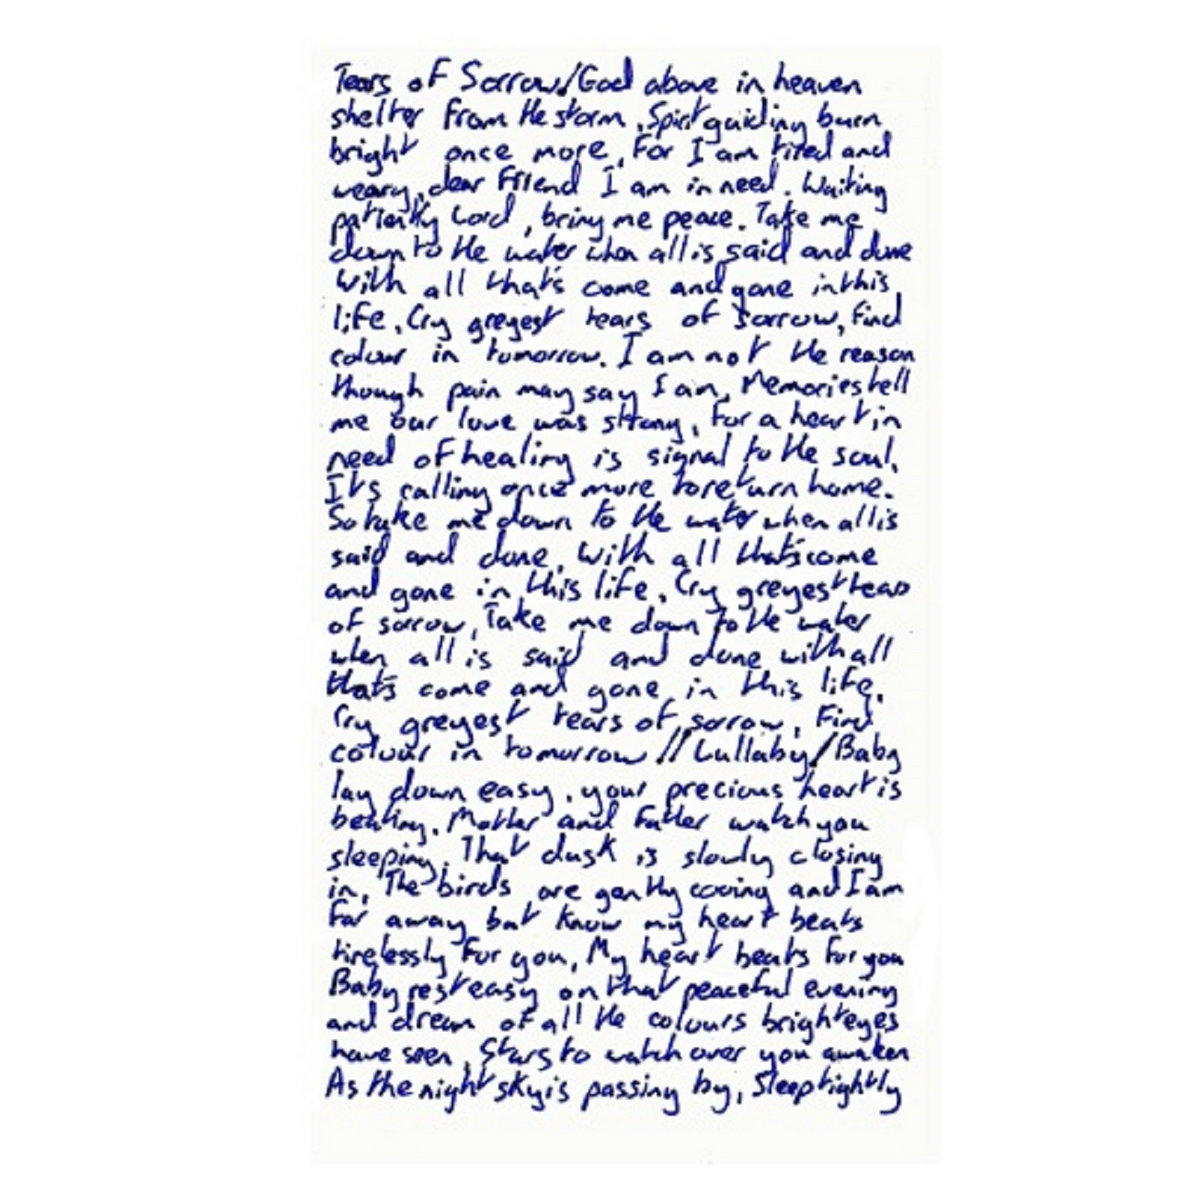 Tears of Sorrow/God above in heaven
shelter from the storm, Spirit guiding burn
bright once more, For I am tired and
weary, dear friend I am in need. Waiting
patiently Lord, bring me peace. Take me
down to the water when all is said and done
With all that's come and gone in this
life, Cry greyest tears of sorrow, find
colour in tomorrow. I am not the reason
though pain may say I am, Memories tell
me our love was strong, for a heart in
need of healing is signal to the soul,
It's calling once more to return home.
So take me down to the water when all is
said and done, With all that's come
and gone in this life, Cry greyest tears
of sorrow, Take me down to the water
when all is said and done with all
that's come and gone in this life,
Cry greyest tears of sorrow, Find
colour in tomorrow // Lullaby/Baby
lay down easy, your precious heart is
beating. Mother and Father watch you
sleeping, That dusk is slowly closing
in, The birds are gently cooing and I am
far away but know my heart beats
tirelessly for you, My heart beats for you
Baby rest easy on that peaceful evening
and dream of all the colours bright eyes
have seen, Stars to watch over you awaken
As the night sky is passing by, Sleep tightly